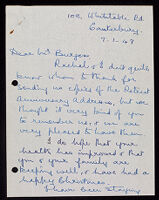 102, Whitstable Rd.
Canterbury.
9.1.49
Dear Mr Burgess
Rachel & I don't quite
know whom to thank for
sending us copies of the Retreat
Anniversary Addresses, but we
thought it very kind of you
to remember us, & we are
very pleased to have them.
I do hope that your
health has improved & that
you & your family are
keeping well, & have had a
happy Christmas.
I have been staying